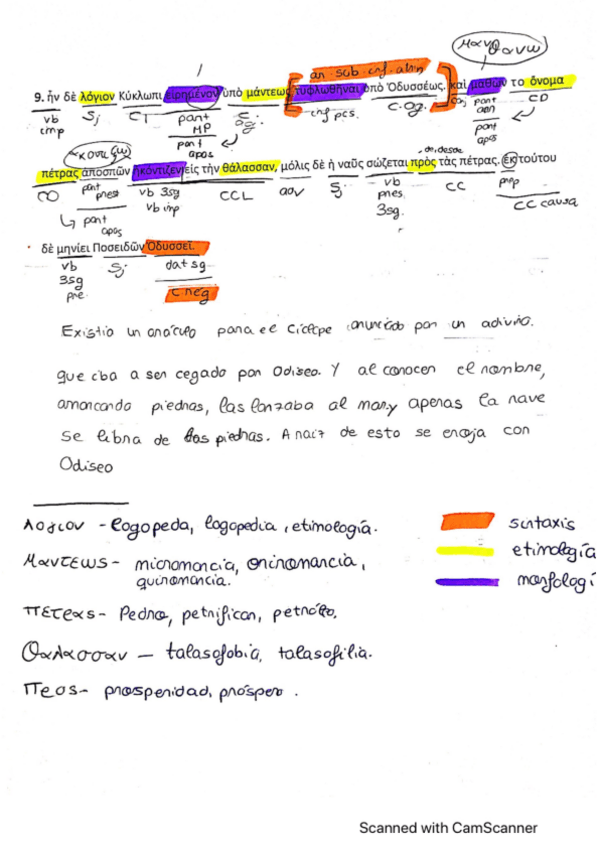 μανθανω
or. sub. inf. abry
9. ἦν δὲ λόγιον Κύκλωπι εἰρημένον ὑπὸ μάντεως τυφλωθῆναι ὑπὸ Ὀδυσσέως. καὶ μαθὼν το ὄνομα
vb imp Sj CI part MP C. ag. inf pas. C. ag. conj part aor CD
part apos part apos
ακοντιζω ... desde
πέτρας ἀποσπῶν ἠκόντιζεν εἰς τὴν θάλασσαν, μόλις δὲ ἡ ναῦς σώζεται πρὸς τὰς πέτρας. ἐκ τούτου
CD part pres vb 3sg CCL adv Sj vb pres 3sg. CC prep CC causa
part apos vb imp
δὲ μηνίει Ποσειδῶν Ὀδυσσεῖ.
vb 3sg pre Sj dat sg
C reg
Existio un oráculo para el Cíclope anunciado por un adivino.
que iba a ser cegado por Odiseo. Y al conocer el nombre,
arrancando piedras, las lanzaba al mar, y apenas la nave
se libra de las piedras. A raíz de esto se enoja con
Odiseo
λογιον - logopeda, logopedia, etimología.
Μαντεως - micromancia, oniromancia,
quiromancia.
πέτρας - Piedra, petrificar, petróleo.
Θαλασσαν - talasofobia, talasofilia.
Προς - prosperidad, próspero.
sintaxis
etimología
morfologí
Scanned with CamScanner